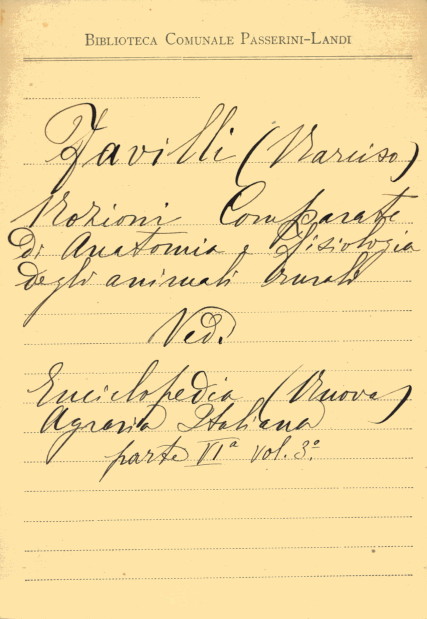 Biblioteca Comunale Passerini-Landi
Favilli (Narciso)
Nozioni Comparate
Di Anatomia e fisiologia
degli animali rurali
Ved.
Enciclopedia (Nuova)
Agraria Italiana
parte VIª vol. 3º.